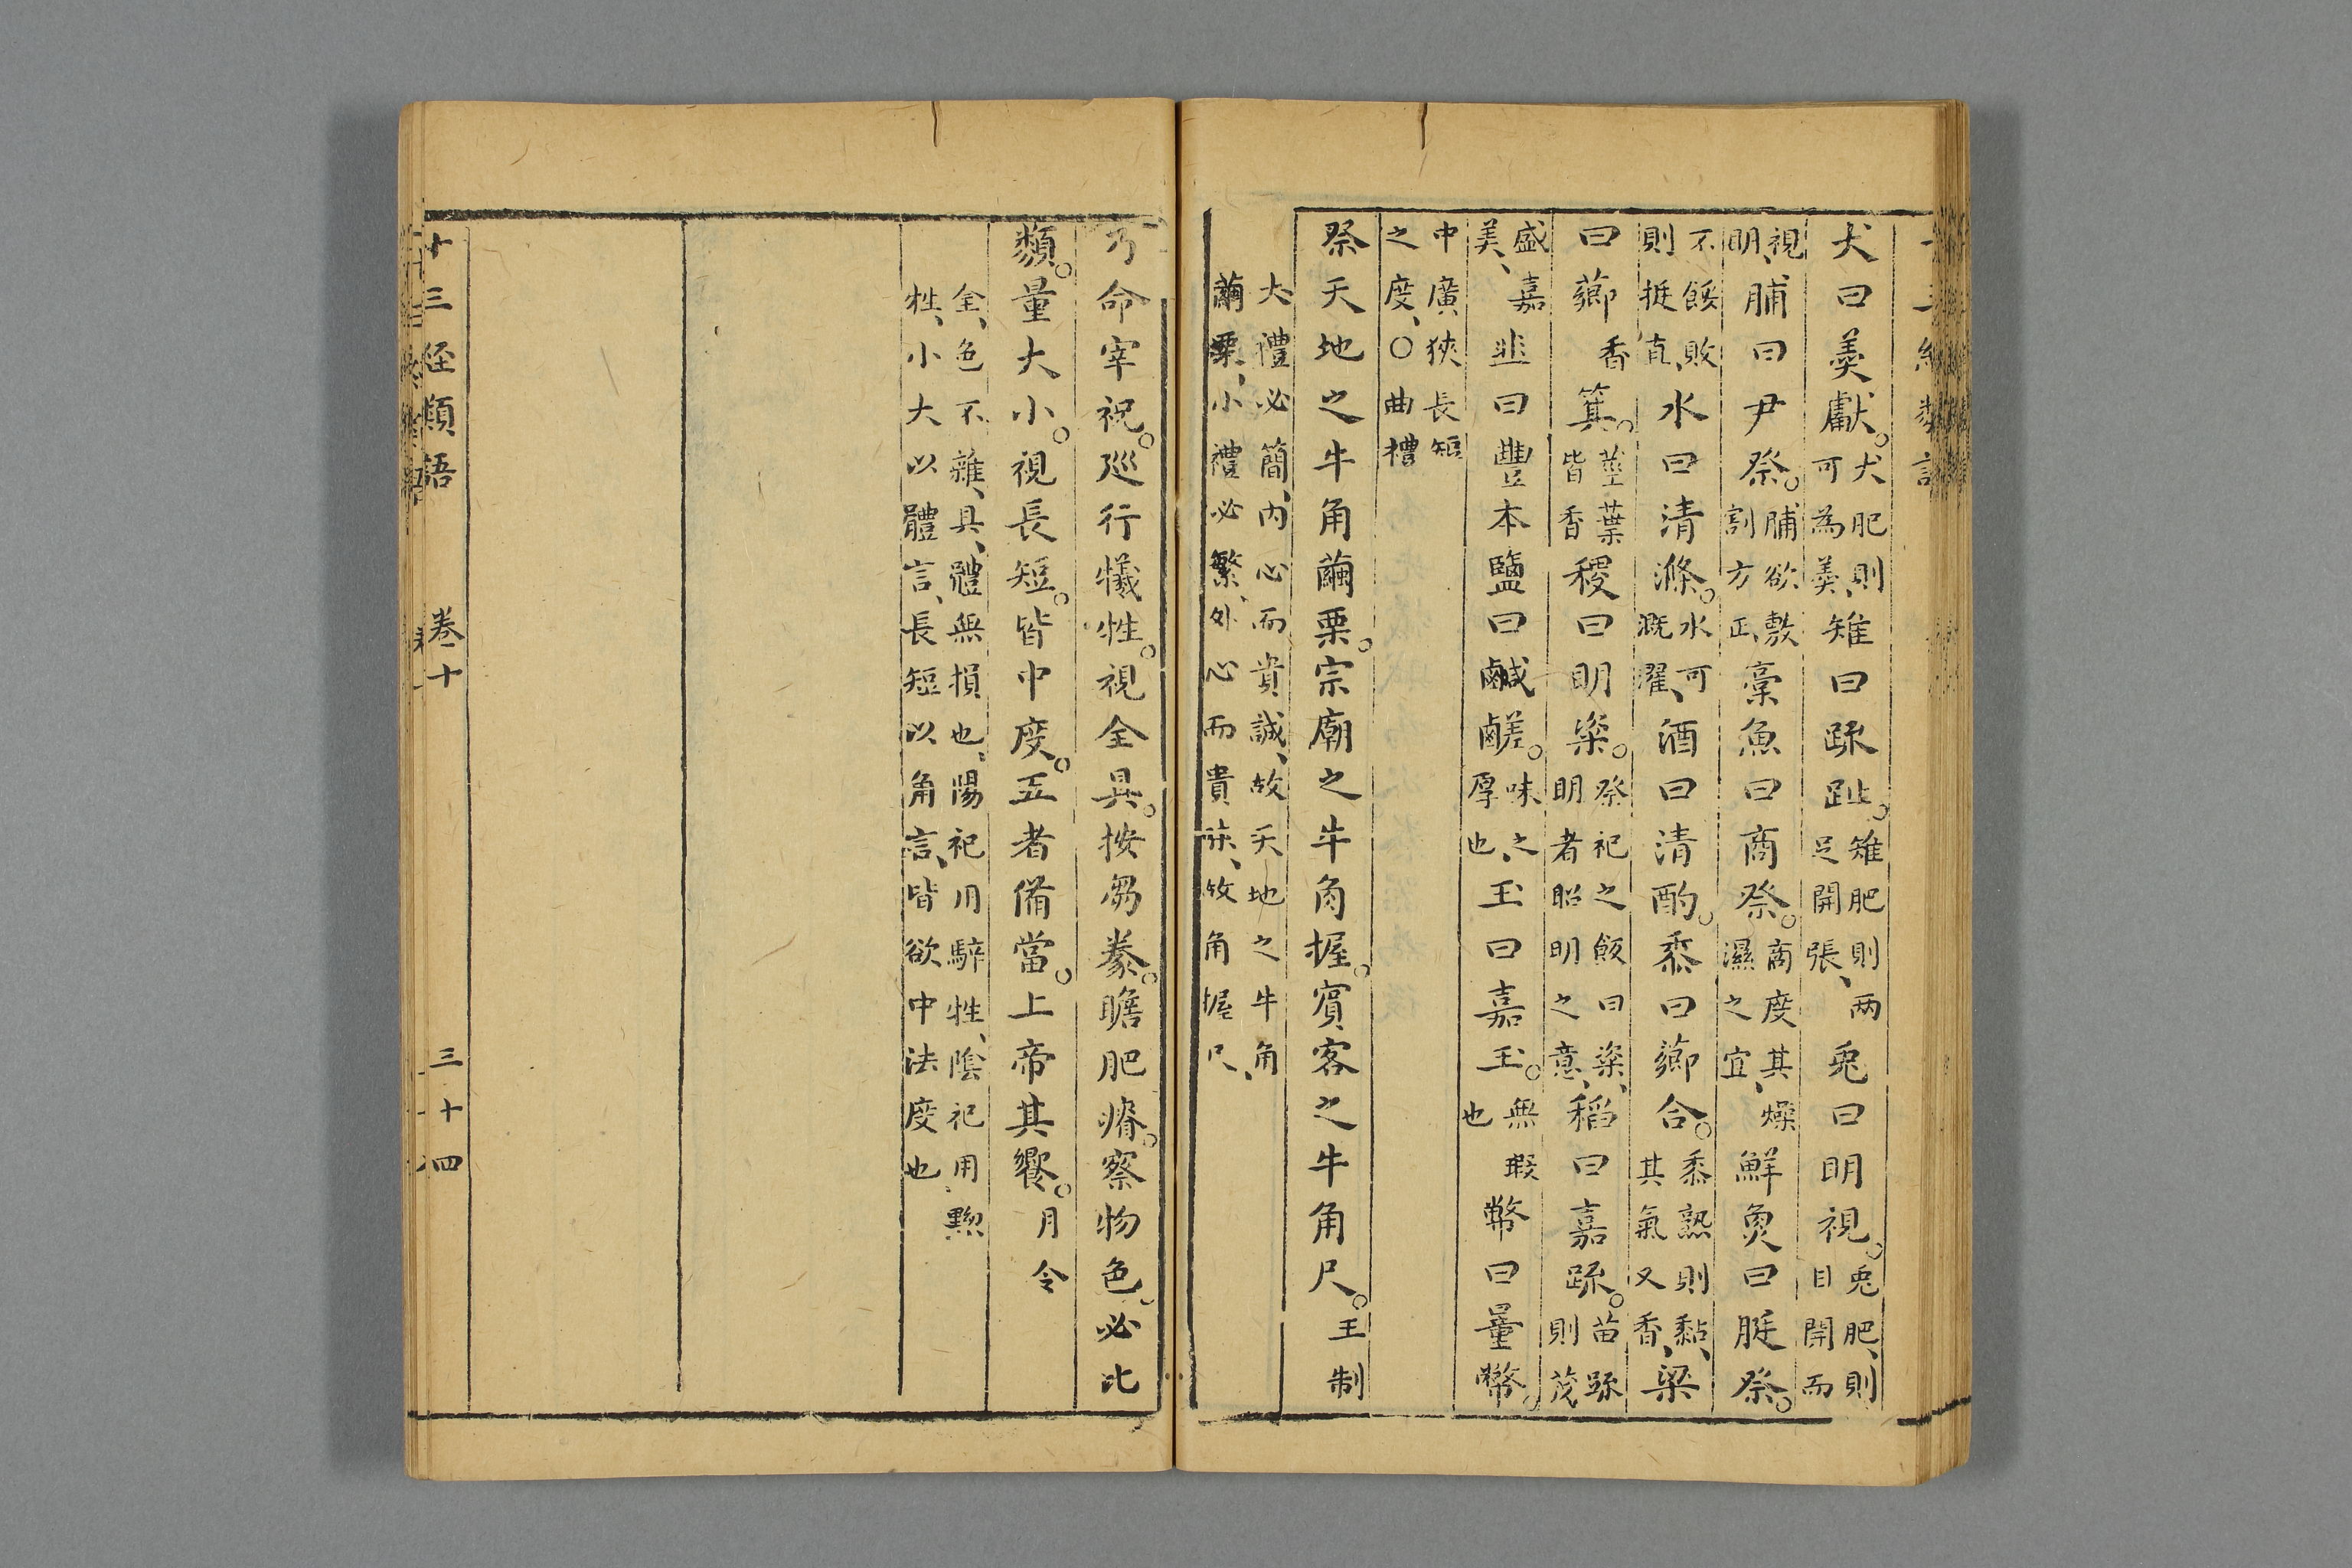 犬曰羹獻。犬肥則可為羹、雉曰疏趾。雉肥則两足開張、兔曰明視。兔肥、則目開而
視明、脯曰尹祭。脯欲敷割方正、槀魚曰商祭。商度其燥濕之宜、鮮魚曰脡祭。
不餒敗則挺直、水曰清滌。水可溉濯、酒曰清酌。黍曰薌合。黍熟則黏、其氣又香、梁
曰薌香萁。莖葉皆香稷曰明粢。祭祀之飯曰粢、明者昭明之意、稻曰嘉疏。苗疏則茂
盛嘉美、韭曰豐本鹽曰鹹鹺。味之厚也、玉曰嘉玉。無瑕也幣曰量幣。
中廣狹長短之度、○曲禮
祭天地之牛角繭栗。宗廟之牛角握。賓客之牛角尺。王制
大禮必簡、内心而貴誠、故天地之牛角、
繭栗、小禮必繁、外心而貴味、故角握尺、
乃命宰祝。廵行犧牲。視全具。按芻豢。瞻肥瘠。察物色。必比
類。量大小。視長短。皆中度。五者備當。上帝其饗。月令
全、色不雜、具、體無損也、陽祀用騂牲、陰祀用黝
牲、小大以體言、長短以角言、皆欲中法度也
十三經類語 卷十 三十四